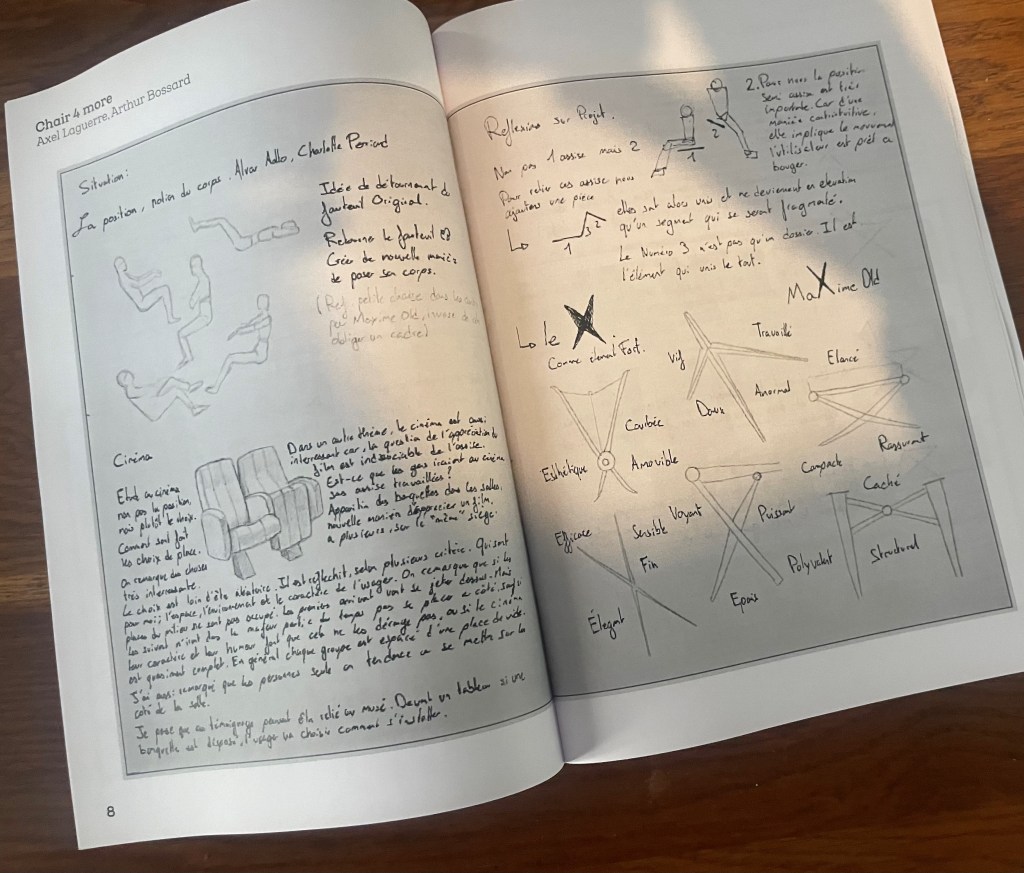 Chair 4 more
Axel Laguerre, Arthur Bossard
Situation:
La position, notion du corps. Alvar Aalto, Charlotte Perriand
Idée de détournement du
fauteuil Original.
Retourne le fauteuil
Crée de nouvelle manière
de poser son corps.
(Ref. petite chaise dans les
par Maxime Old,
obliger un cadre)
Cinéma
Etude au cinéma
non pas la position,
mais plutôt le choix.
Comment sont fait
les choix de place.
On remarque des choses
très interressante.
Dans un autre thème, le cinéma est aussi
interressant car, la question de l'appréciation du
film est indissociable de l'assise.
Est-ce que les gens iraient au cinéma
sans assise travaillées?
Apparition des banquettes dans les salles,
nouvelle manière d'apprécier un film,
a plusieurs, sur le "même" siège.
Le choix est loin d'être aléatoire. Il est réfléchit, selon plusieurs critère. Qui sont
pour moi; l'espace, l'environnement et le caractère de l'usager. On remarque que si les
places du milieu ne sont pas occupé. Les premiers arrivant vont se jeter dessus. Mais
les suivant n'iront dans la majeur partie du temps pas se placer a côté. Sauf si
leur caractère et leur humeur font que cela ne les dérange pas, ou si le cinéma
est quasiment complet. En général chaque groupe est espacé d'une place de vide.
J'ai aussi remarqué que les personnes seule on tendence a se mettre sur le
côté de la salle.
Je pense que ce témoignage peuvent être relié au musé. Devant un tableau si une
banquette est disposé, l'usager va choisir comment s'installer.
8
Reflexion sur Projet.
Non pas 1 assise mais 2
Pour relier ces assise nous
ajoutons une pièce
1
2
2. Pour nous la position
semi assise est très
importante. Car d'une
manière
elle implique le mouvement
l'utilisateur est prêt a
bouger.
1
3
2
elles sont alors unis et ne deviennent en élévation
qu'un segment qui se serait fragmenté.
Le Numéro 3 n'est pas qu'un dossier. Il est
l'élément qui unis le tout.
Le X
Comme élément Fort.
MaXime Old
Vif
Travaillé
Elancé
Doux
Anormal
Courbée
Esthétique
Amovible
Rassurant
Compacte
Caché
Efficace
Sensible
Voyant
Puissant
Fin
Polyvalent
Structurel
Epais
Élégant